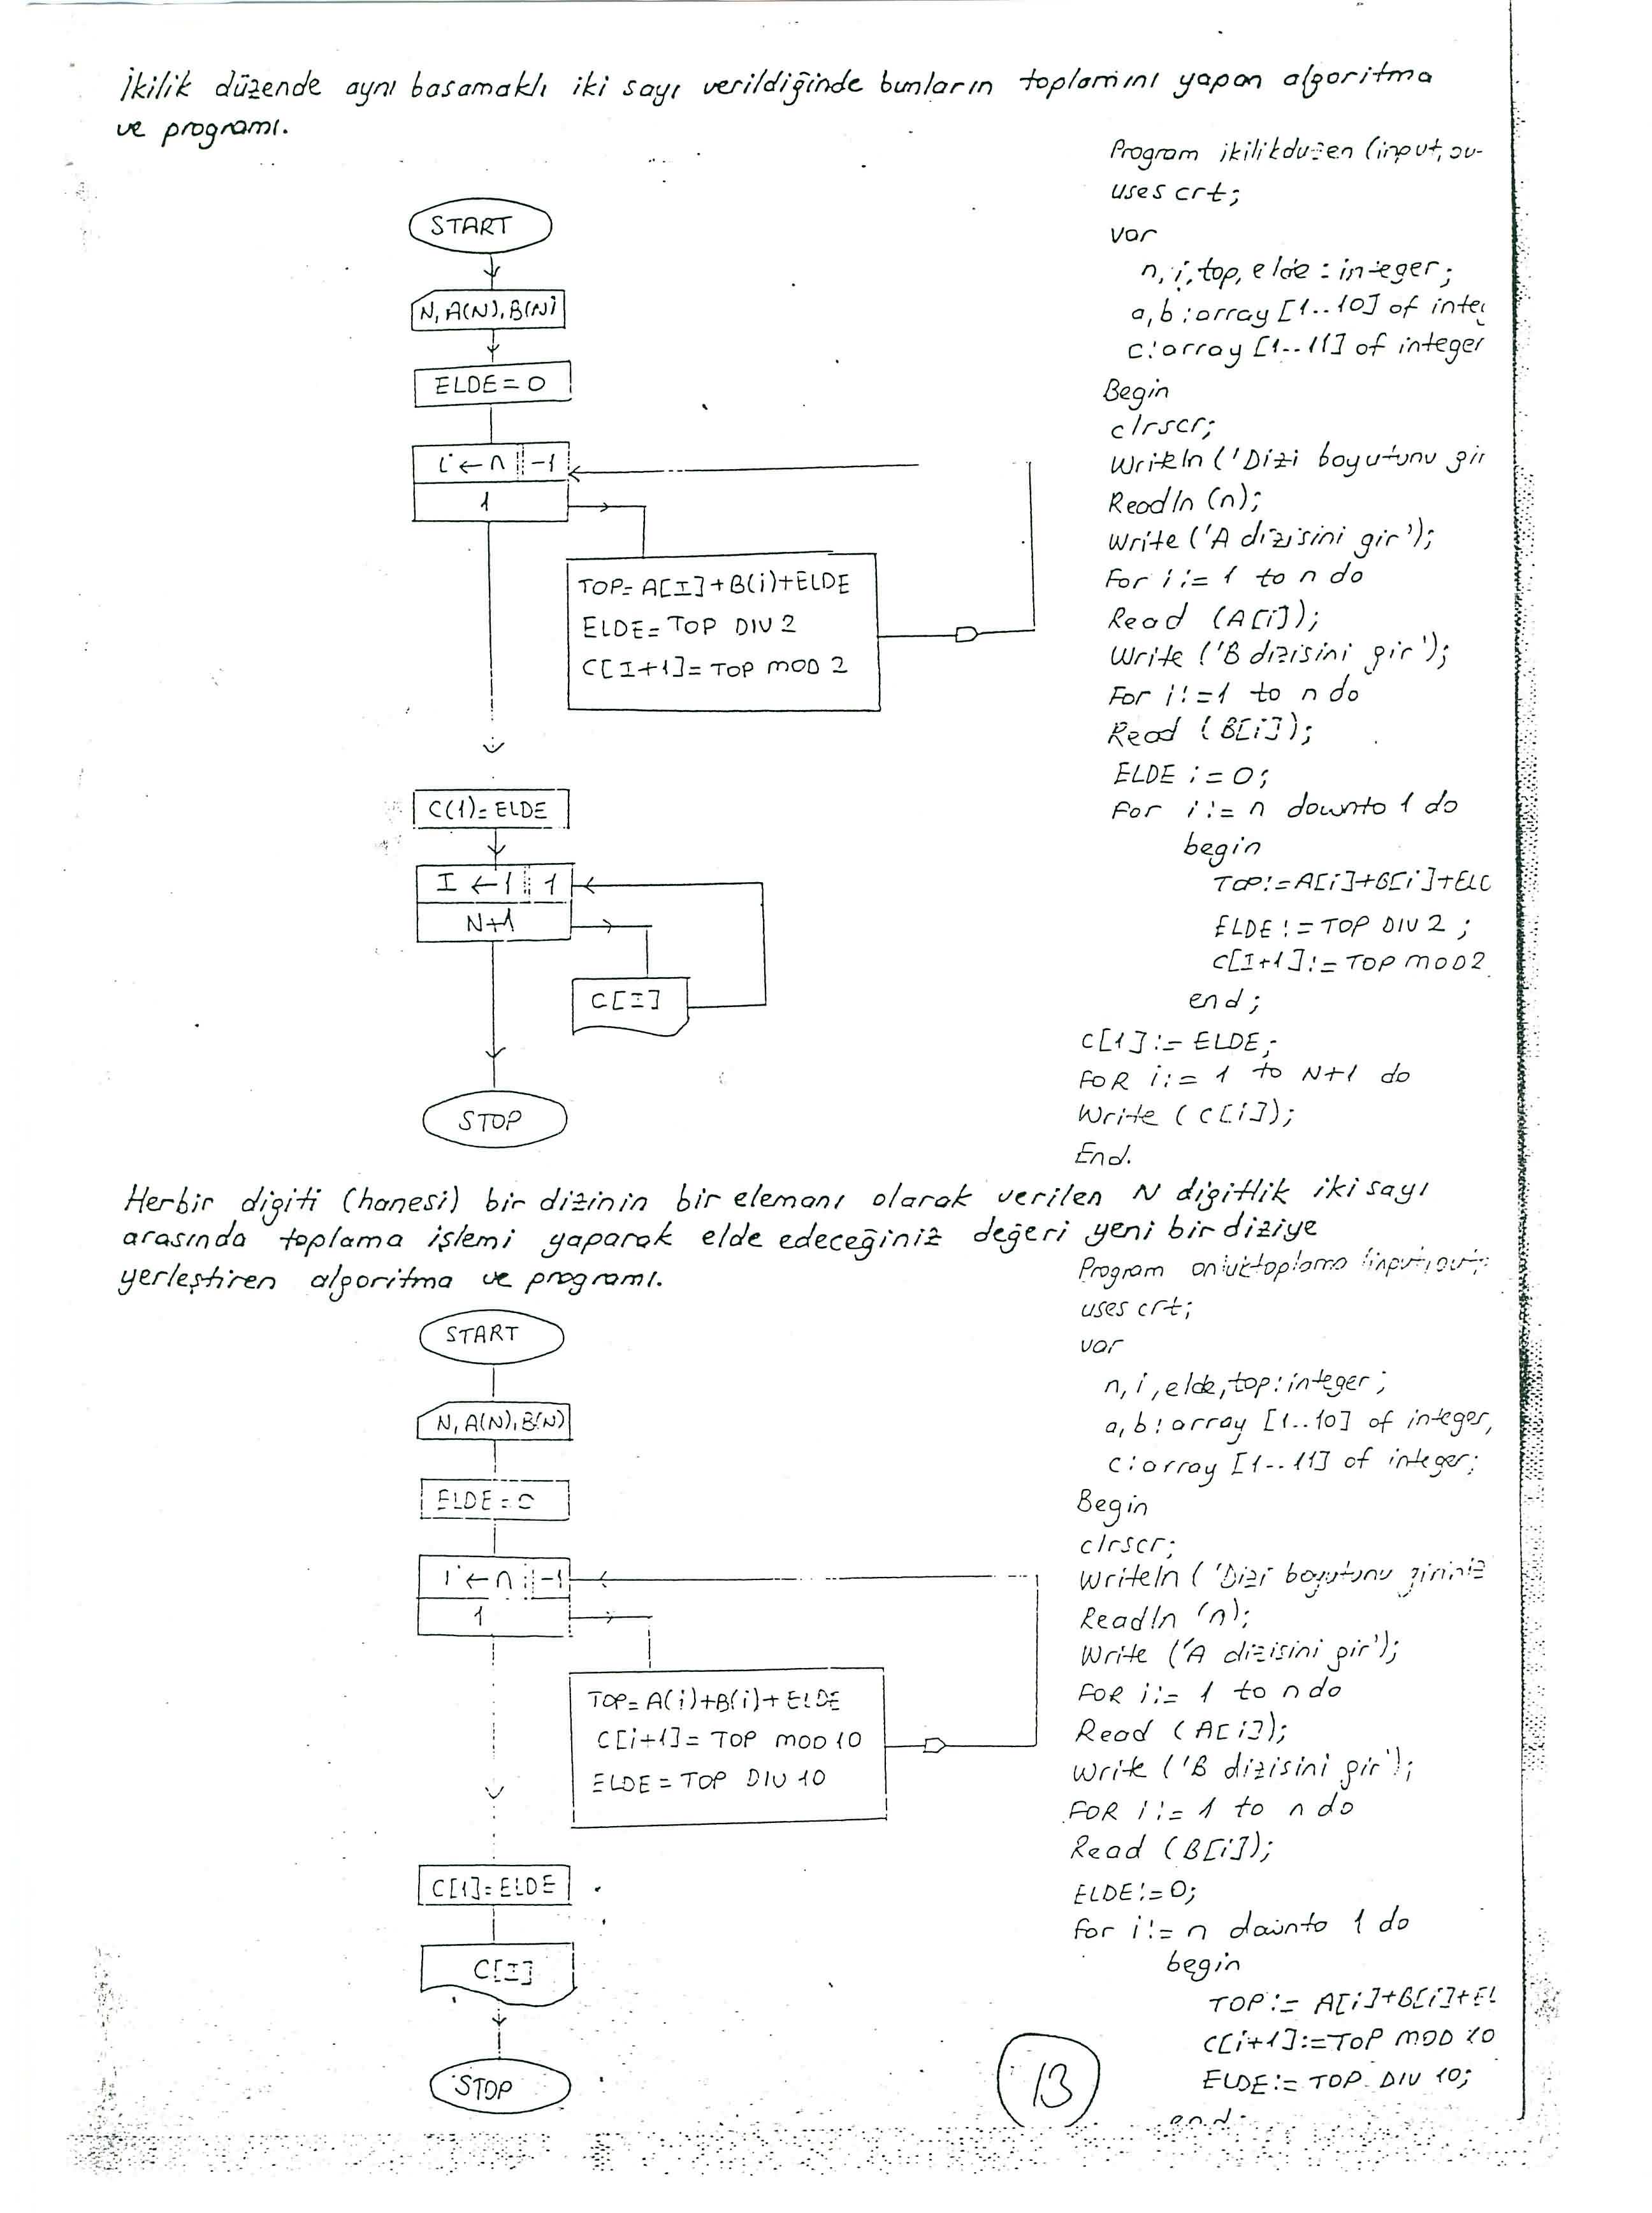 İkilik düzende aynı basamaklı iki sayı verildiğinde bunların toplamını yapan algoritma
ve programı.
START
N, A(N), B(N)
ELDE = 0
i ← n -1
1
TOP= A[I]+B(i)+ELDE
ELDE= TOP DIV 2
C[I+1]= TOP MOD 2
C(1)= ELDE
I ← 1 1
N+1
C[I]
STOP
Program ikilikduzen (input, ou-
uses crt;
var
n, i, top, elde : integer;
a, b : array [1..10] of integ
c: array [1..11] of integer
Begin
clrscr;
Writeln ('Dizi boyutunu gir
Readln (n);
Write ('A dizisini gir');
For i := 1 to n do
Read (A[i]);
Write ('B dizisini gir');
For i := 1 to n do
Read (B[i]);
ELDE := 0;
For i := n downto 1 do
begin
TOP:= A[i]+B[i]+ELD
ELDE := TOP DIV 2 ;
C[I+1]:= TOP MOD 2
end ;
C[1] := ELDE;
FOR i := 1 to N+1 do
Write ( C[i]);
End.
Herbir digiti (hanesi) bir dizinin bir elemanı olarak verilen N digitlik iki sayı
arasında toplama işlemi yaparak elde edeceğiniz değeri yeni bir diziye
yerleştiren algoritma ve programı.
START
N, A(N), B(N)
ELDE = 0
i ← n -1
1
TOP= A(i)+B(i)+ELDE
C[i+1]= TOP MOD 10
ELDE = TOP DIV 10
C[1]= ELDE
C[I]
STOP
Program onluktoplama (input, out
uses crt;
var
n, i, elde, top: integer ;
a, b : array [1..10] of integer,
c: array [1..11] of integer;
Begin
clrscr;
Writeln ( 'Dizi boyutunu giriniz
Readln (n);
Write ('A dizisini gir');
FOR i := 1 to n do
Read (A[i]);
Write ('B dizisini gir');
FOR i := 1 to n do
Read (B[i]);
ELDE := 0;
for i := n downto 1 do
begin
TOP := A[i]+B[i]+EL
C[i+1]:= TOP MOD 10
ELDE := TOP DIV 10;
end;
13